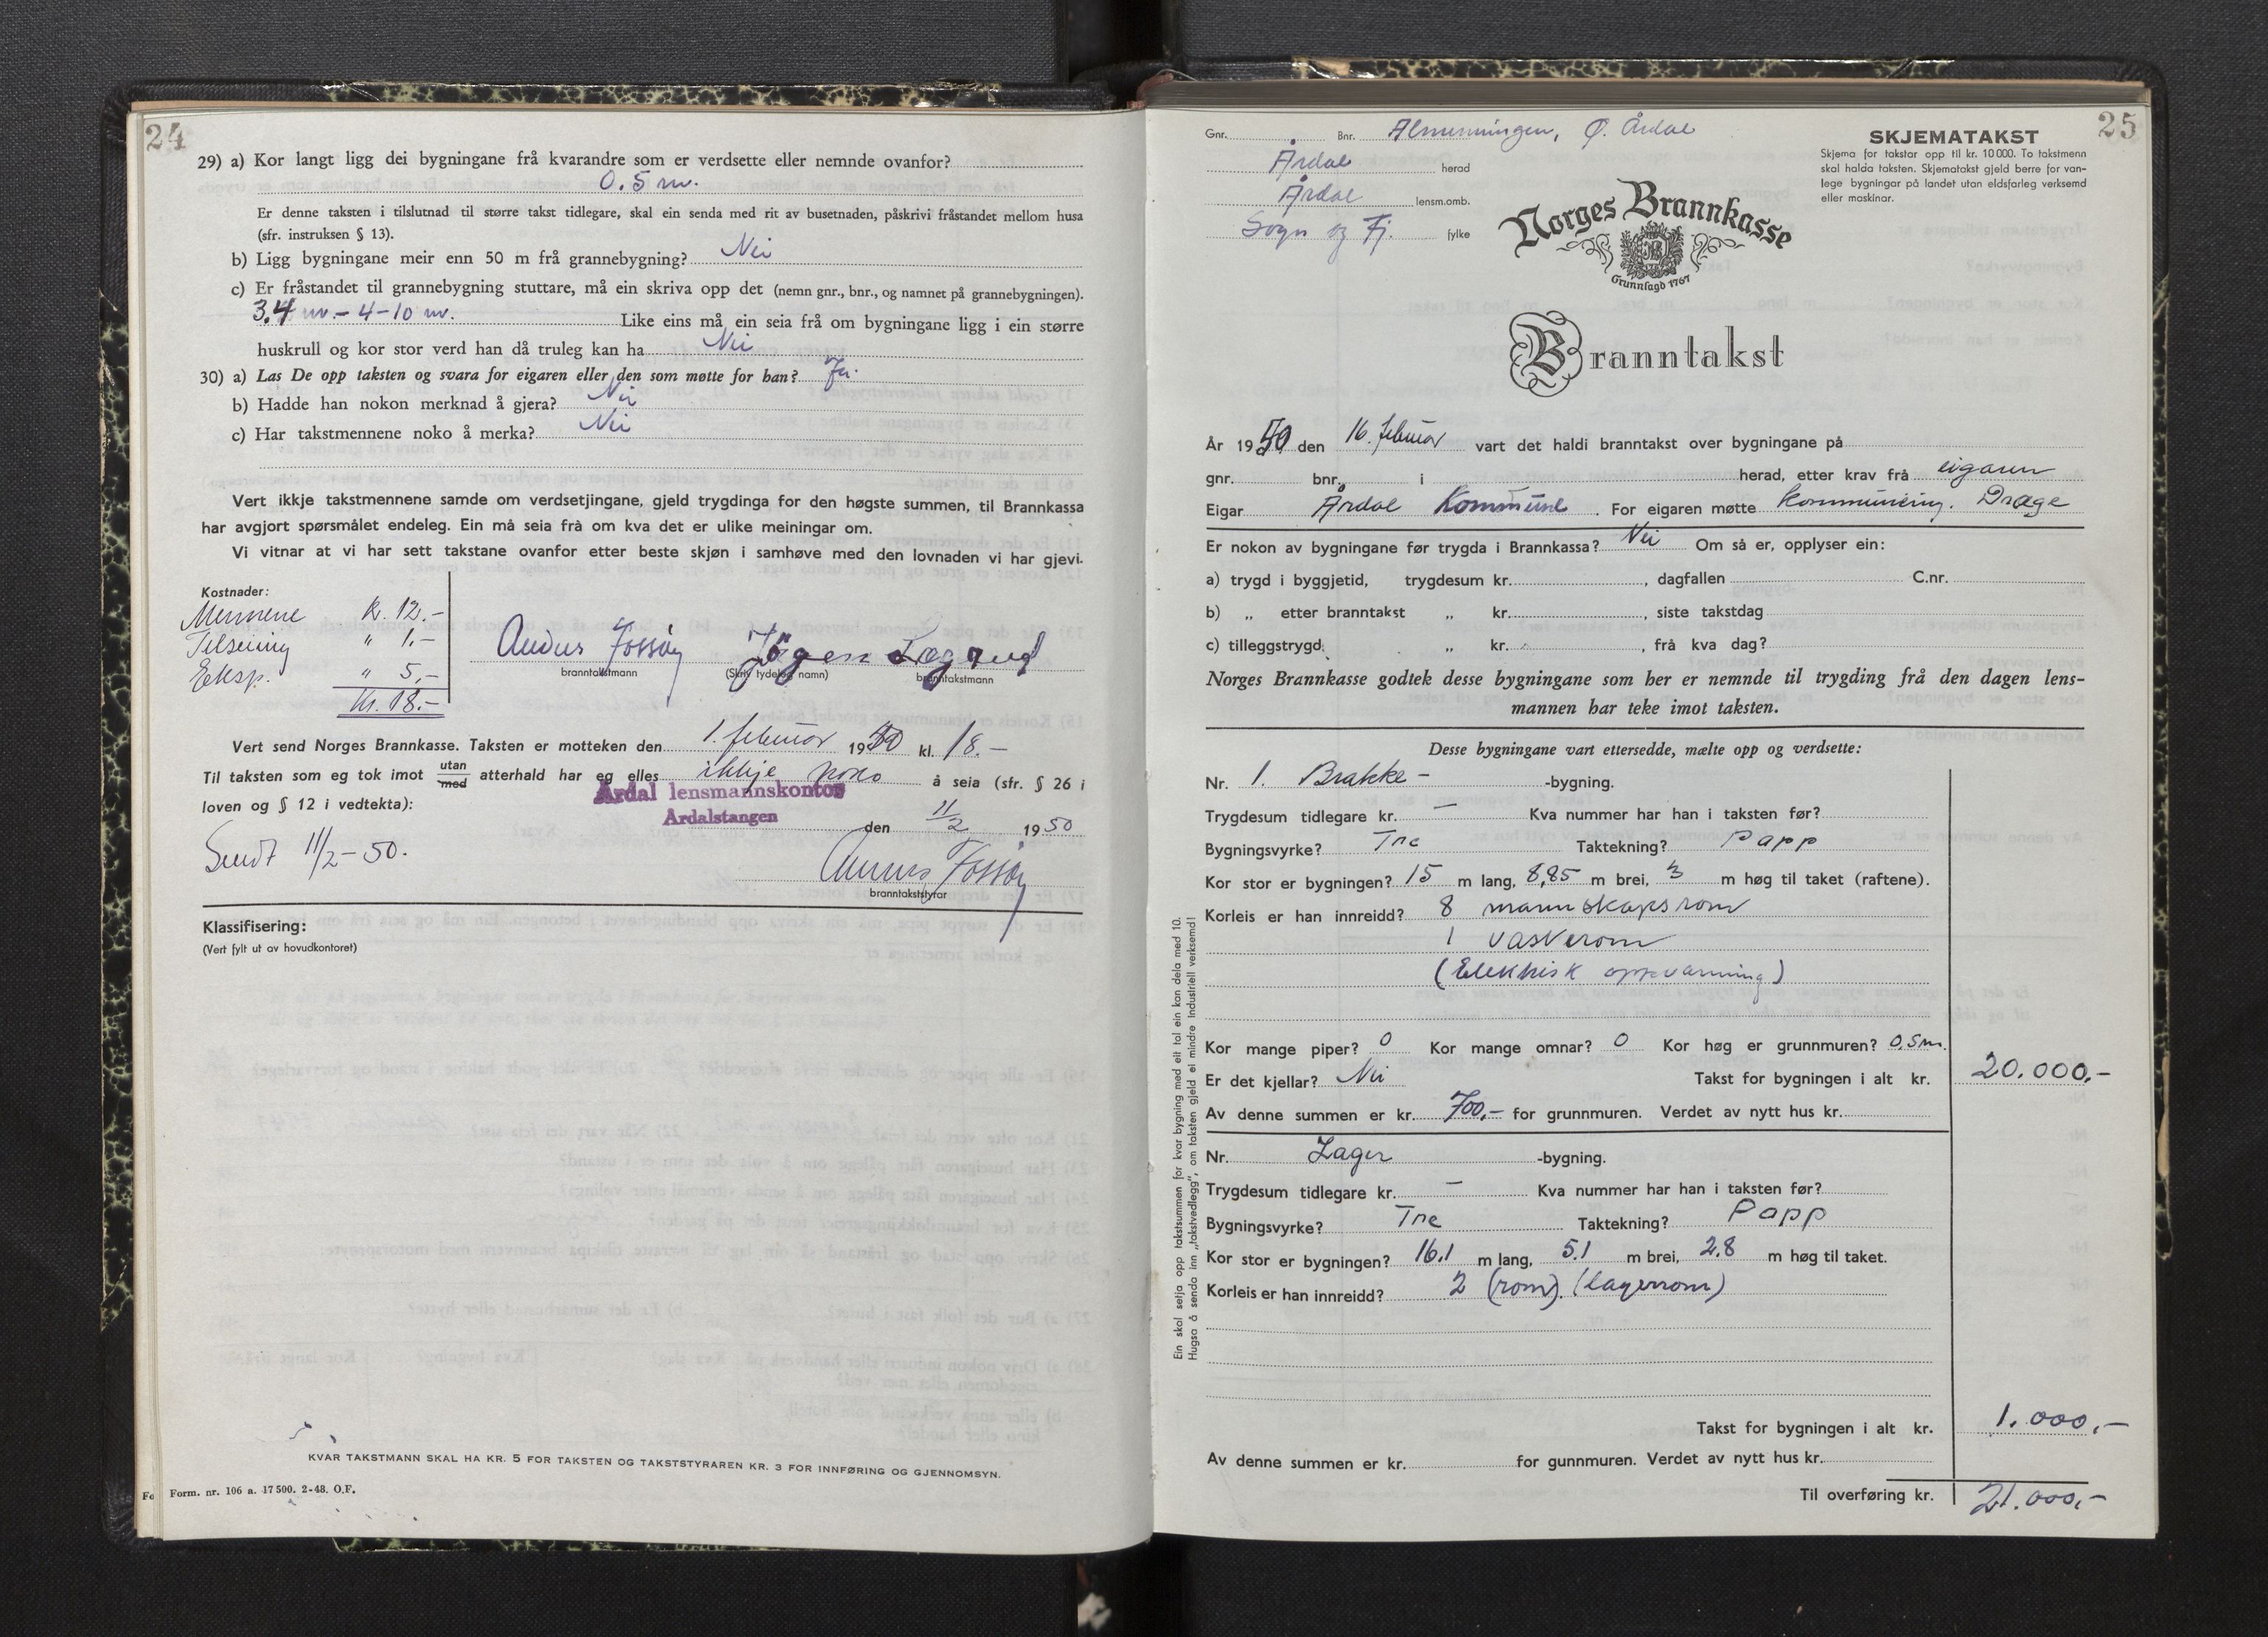 24
29) a) Kor langt ligg dei bygningane frå kvarandre som er verdsette eller nemnde ovanfor?
0.5 m.
Er denne taksten i tilslutnad til større takst tidlegare, skal ein senda med rit av busetnaden, påskrivi fråstandet mellom husa
(sfr. instruksen § 13).
b) Ligg bygningane meir enn 50 m frå grannebygning? Nei
c) Er fråstandet til grannebygning stuttare, må ein skriva opp det (nemn gnr., bnr., og namnet på grannebygningen).
3.4 m. - 4-10 m. Like eins må ein seia frå om bygningane ligg i ein større
huskrull og kor stor verd han då truleg kan ha Nei
30) a) Las De opp taksten og svara for eigaren eller den som møtte for han? Ja.
b) Hadde han nokon merknad å gjera? Nei
c) Har takstmennene noko å merka? Nei
Vert ikkje takstmennene samde om verdsetjingane, gjeld trygdinga for den høgste summen, til Brannkassa
har avgjort spørsmålet endeleg. Ein må seia frå om kva det er ulike meiningar om.
Vi vitnar at vi har sett takstane ovanfor etter beste skjøn i samhøve med den lovnaden vi har gjevi.
Kostnader:
Mennene kr. 12.-
" 1,-
Eksp. " 5,-
Kr. 18.-
branntakstmann (Skriv tydeleg namn) branntakstmann
Vert send Norges Brannkasse. Taksten er motteken den 1. februar 1950 kl. 18.-
Til taksten som eg tok imot utan/med atterhald har eg elles ikkje noko å seia (sfr. § 26 i
loven og § 12 i vedtekta):
Årdal lensmannskontor
Årdalstangen
den 11/2 1950
Sendt 11/2-50.
branntakststyrar
Klassifisering:
(Vert fylt ut av hovudkontoret)
KVAR TAKSTMANN SKAL HA KR. 5 FOR TAKSTEN OG TAKSTSTYRAREN KR. 3 FOR INNFØRING OG GJENNOMSYN.
Form. nr. 106 a. 17500. 2-48. O.F.
25
Gnr. Bnr. Almenningen, Ø. Årdal
Årdal herad
Årdal lensm.omb.
Sogn og Fj. fylke
SKJEMATAKST
Skjema for takstar opp til kr. 10 000. To takstmenn
skal halda taksten. Skjematakst gjeld berre for van-
lege bygningar på landet utan eldsfarleg verksemd
eller maskinar.
Norges Brannkasse
Grunnlagd 1767
Branntakst
År 1950 den 16. februar vart det haldi branntakst over bygningane på
gnr. bnr. i herad, etter krav frå eigaren
Eigar Årdal Kommune. For eigaren møtte kommuneing. Drage
Er nokon av bygningane før trygda i Brannkassa? Nei Om så er, opplyser ein:
a) trygd i byggjetid, trygdesum kr. , dagfallen C.nr.
b) „ etter branntakst „ kr. , siste takstdag
c) tilleggstrygd „ kr. , frå kva dag?
Norges Brannkasse godtek desse bygningane som her er nemnde til trygding frå den dagen lens-
mannen har teke imot taksten.
Desse bygningane vart ettersedde, mælte opp og verdsette:
Nr. 1. Brakke- -bygning.
Trygdesum tidlegare kr. — Kva nummer har han i taksten før?
Bygningsvyrke? Tre Taktekning? Papp
Kor stor er bygningen? 15 m lang, 8,85 m brei, 3 m høg til taket (raftene).
Korleis er han innreidd? 8 mannskapsrom
1 vaskerom
(Elektrisk oppvarming)
Kor mange piper? 0 Kor mange omnar? 0 Kor høg er grunnmuren? 0,5m.
Er det kjellar? Nei Takst for bygningen i alt kr. 20.000.-
Av denne summen er kr. 700,- for grunnmuren. Verdet av nytt hus kr.
Nr. Lager -bygning.
Trygdesum tidlegare kr. — Kva nummer har han i taksten før?
Bygningsvyrke? Tre Taktekning? Papp
Kor stor er bygningen? 16.1 m lang, 5.1 m brei, 2.8 m høg til taket.
Korleis er han innreidd? 2 (rom). (lagerrom)
Takst for bygningen i alt kr. 1.000,-
Av denne summen er kr. for gunnmuren. Verdet av nytt hus kr.
Til overføring kr. 21.000,-
Ein skal setja opp takstsummen for kvar bygning med eit tal ein kan dela med 10.
Hugsa å senda inn „takstvedlegg", om taksten gjeld ei mindre industriell verksemd!